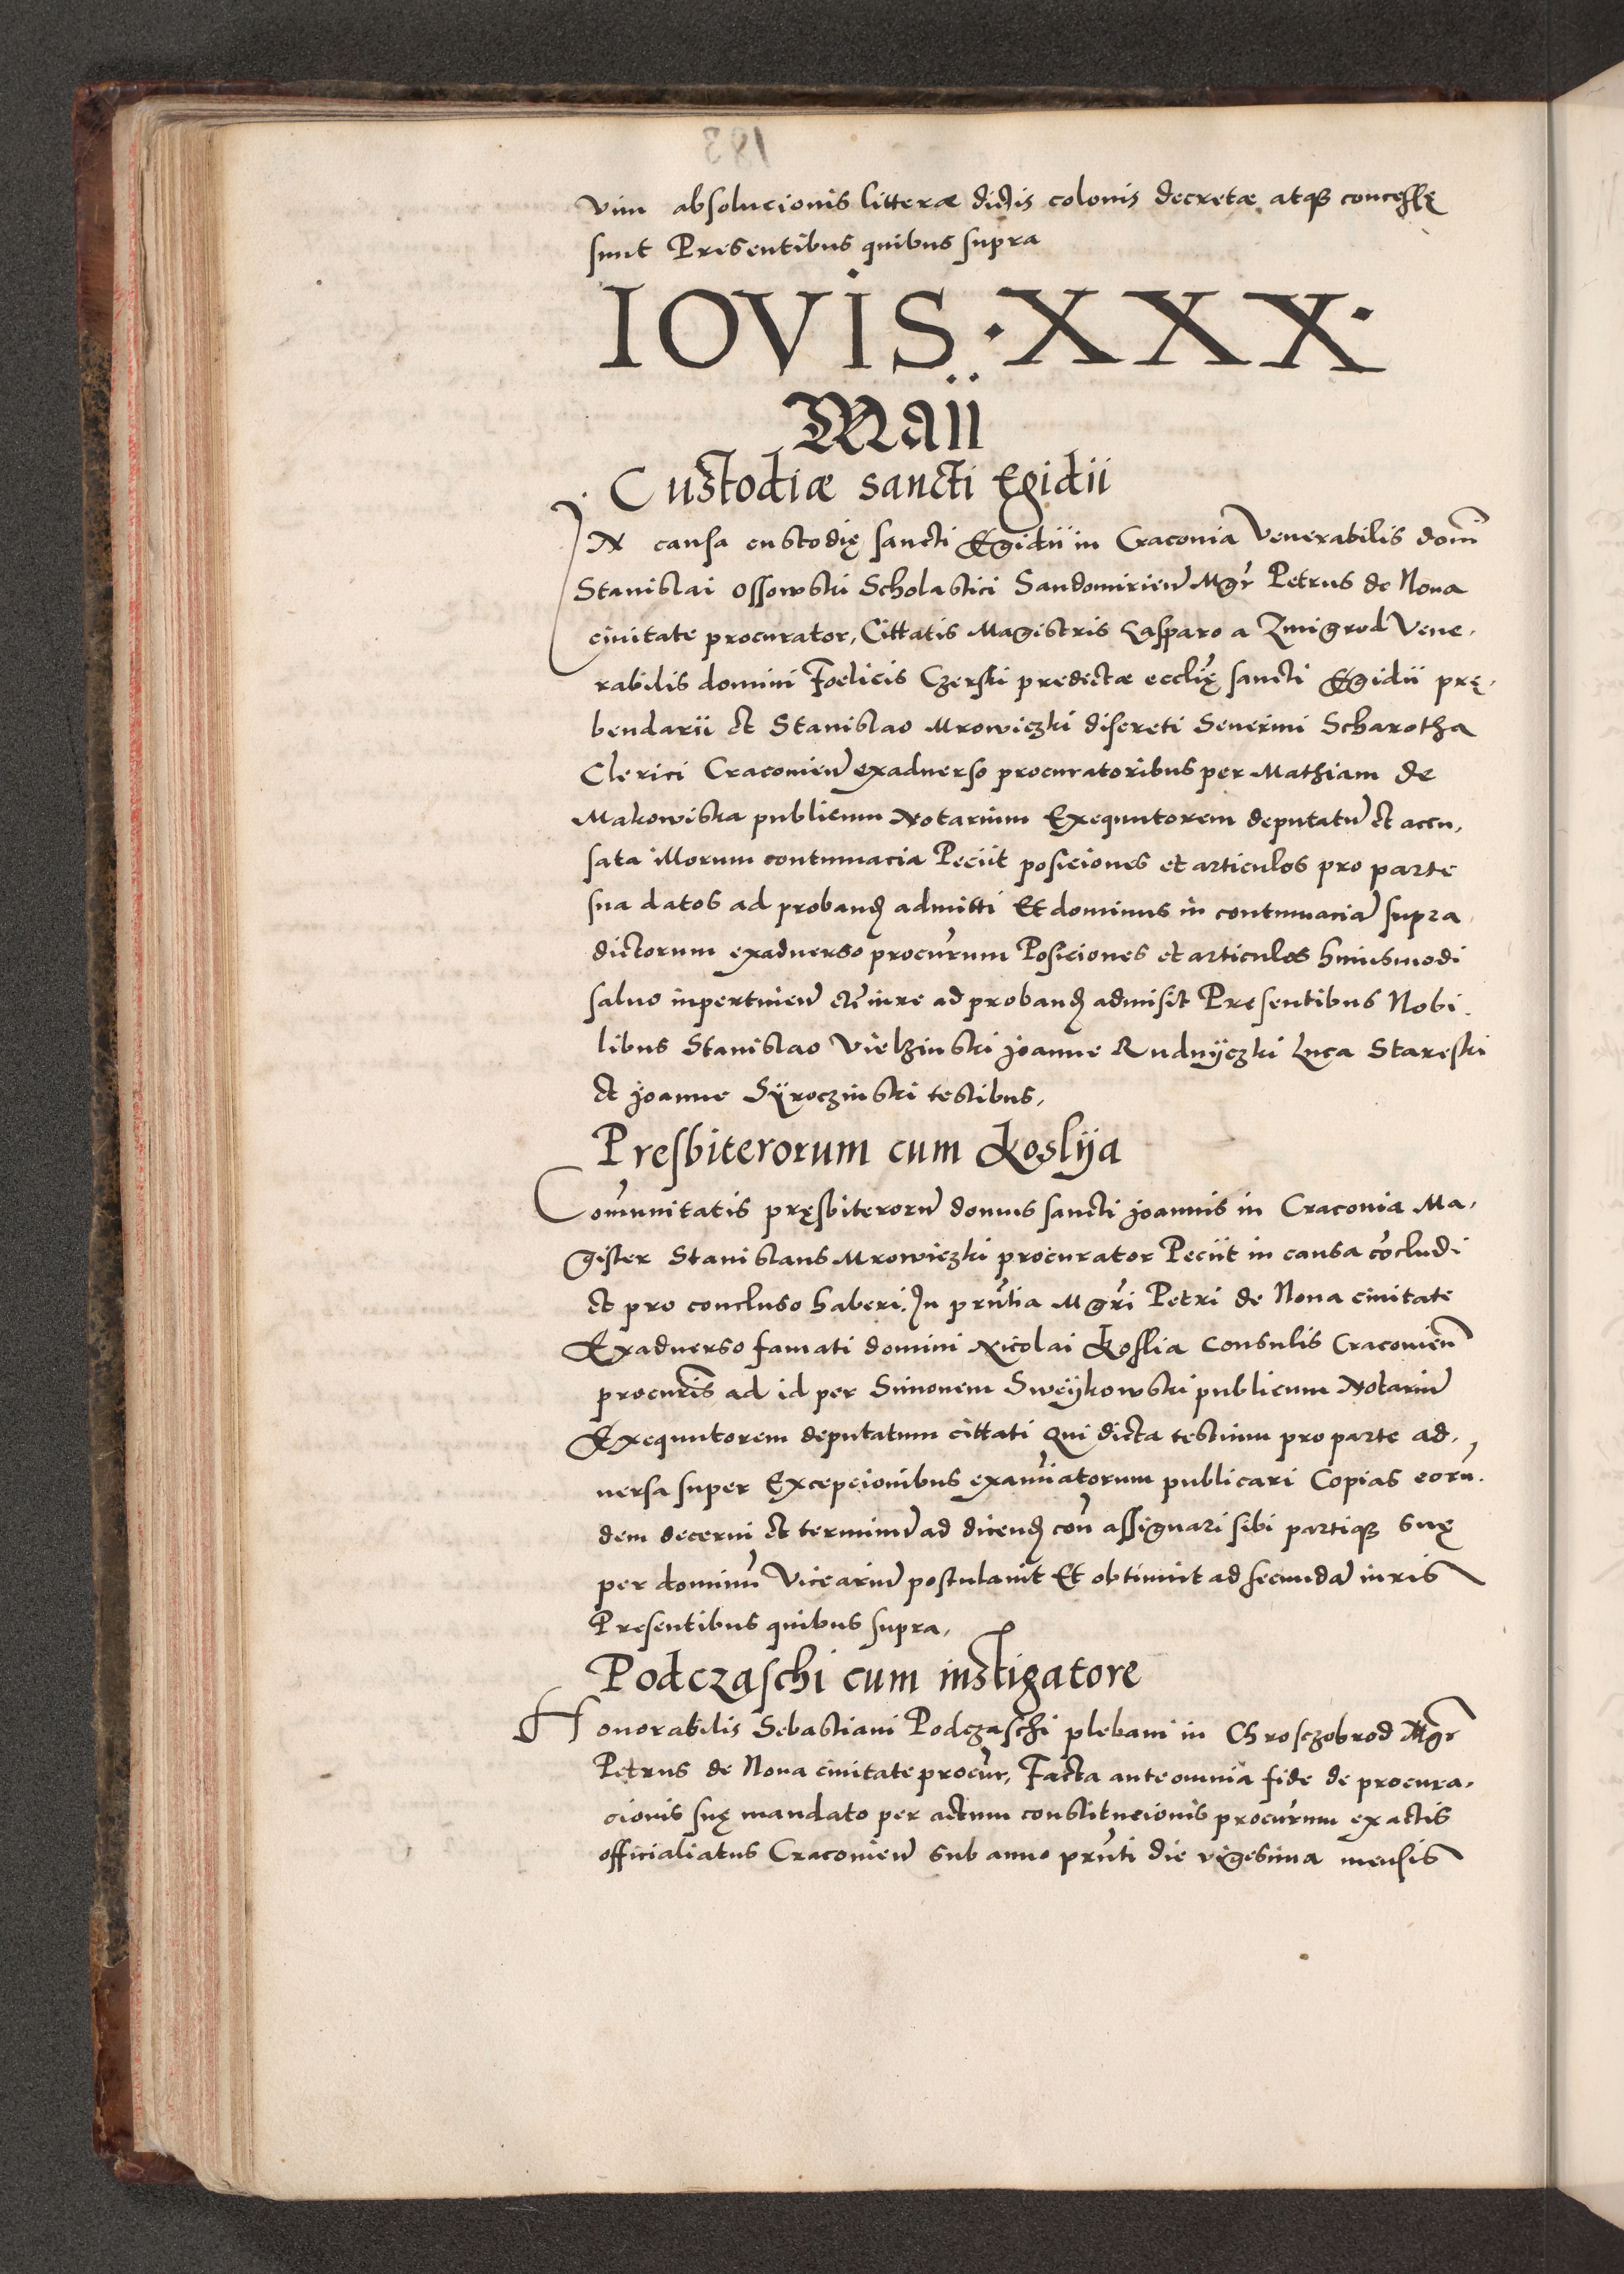 vim absolucionis litteræ dictis colonis decretæ atq[ue] concessę
sunt Presentibus quibus supra
IOVIS · XXX ·
Maii
Custodiæ sancti Egidii
IN causa custodię sancti Egidii in Cracouia Venerabilis domi
Stanislai Ossowski Scholastici Sandomirien Mgr Petrus de Noua
ciuitate procurator, Cittatis Magistris Casparo a Zmigrod Vene,
rabilis domini Foelicis Czerski predictæ ecclię sancti Egidii prę,
bendarii et Stanislao Mrowiczki discreti Seuerini Scharotha
Clerici Cracouien exaduerso procuratoribus per Mathiam de
Makowiska publicum Notarium Exequutorem deputatu et accu,
sata illorum contumacia Peciit posiciones et articulos pro parte
sua datos ad proband admitti Et dominus in contumacia supra
dictorum exaduerso procurum Posiciones et articulos huiusmodi
saluo inpertinen et in iure ad proband admisit Presentibus Nobi,
libus Stanislao Vielzinski Joanne Rudnÿczki Luca Stareski
et Joanne Sÿroczinski testibus,
Presbiterorum cum Koslÿa
Comunitatis pręsbiteroru domus sancti Joannis in Cracouia Ma,
gister Stanislaus Mrowiczki procurator Peciit in causa cocludi
et pro concluso haberi, In prutia Mgri Petri de Noua ciuitate
Exaduerso famati domini Nicolai Koslia Consulis Cracouien
procuris ad id per Simonem Sweÿkowski publicum Notariu
Exequutorem deputatum cittati Qui dicta testium pro parte ad,
uersa super Excepcionibus exaiatorum publicari Copias eoru,
dem decerni et terminu ad dicend con assignari sibi partiq[ue] suę
per dominu Vicariu postulauit Et obtinuit ad secunda iuris
Presentibus quibus supra,
Podczaschi cum instigatore
Honorabilis Sebastiani Podczaschi plebani in Chrosczobrod Mgr
Petrus de Noua ciuitate procur, Facta ante omnia fide de procura,
cionis suę mandato per actum constitucionis procurum ex actis
officialiatus Cracouien sub anno pruti die vigesima mensis